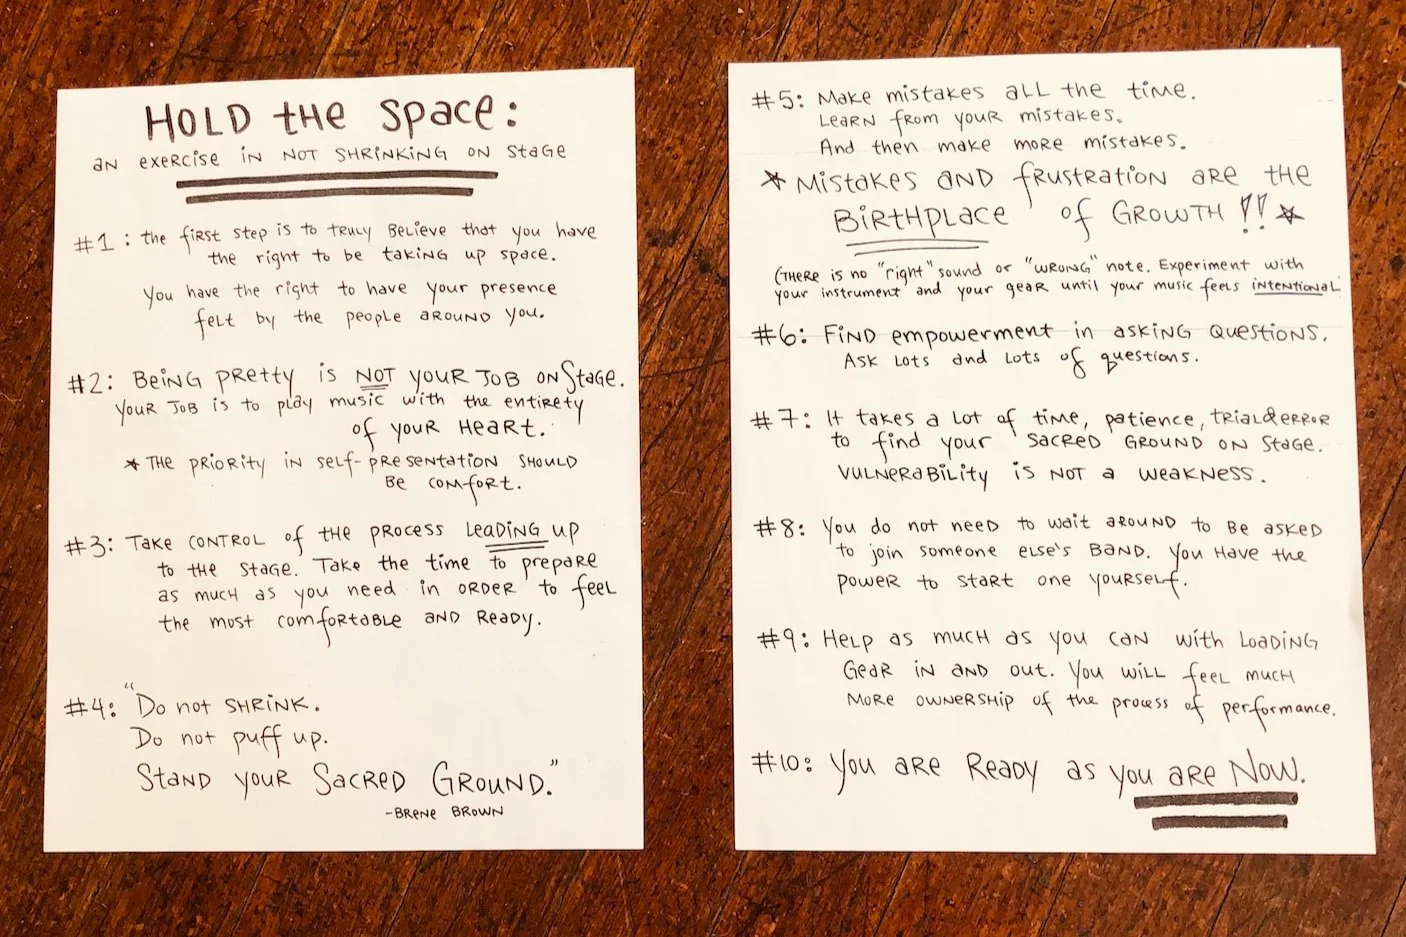 HOLD the Space:
an exercise in not shrinking on stage
#1: the first step is to truly believe that you have
the right to be taking up space.
You have the right to have your presence
felt by the people around you.
#2: Being pretty is NOT your job on stage.
Your job is to play music with the entirety
of your heart.
* The priority in self-presentation should
be comfort.
#3: Take control of the process leading up
to the stage. Take the time to prepare
as much as you need in order to feel
the most comfortable and ready.
#4: "Do not shrink.
Do not puff up.
Stand your Sacred Ground."
-Brene Brown
#5: Make mistakes all the time.
Learn from your mistakes.
And then make more mistakes.
* Mistakes and frustration are the
Birthplace of Growth!! *
(There is no "right" sound or "wrong" note. Experiment with
your instrument and your gear until your music feels intentional
#6: Find empowerment in asking questions.
Ask lots and lots of questions.
#7: It takes a lot of time, patience, trial & error
to find your sacred ground on stage.
Vulnerability is not a weakness.
#8: You do not need to wait around to be asked
to join someone else's band. You have the
power to start one yourself.
#9: Help as much as you can with loading
gear in and out. You will feel much
more ownership of the process of performance.
#10: You are Ready as you are Now.